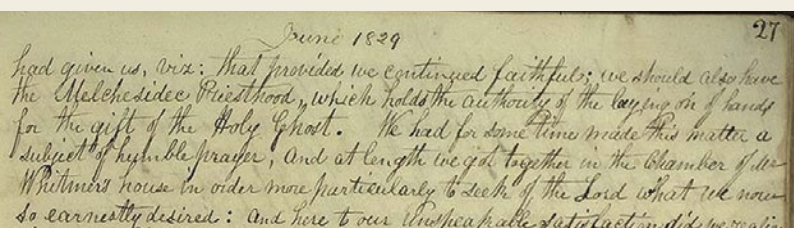 June 1829
27
had given us, viz: that provided we continued faithful; we should also have
the Melchesidec Priesthood, which holds the authority of the laying on of hands
for the gift of the Holy Ghost. We had for some time made this matter a
subject of humble prayer, and at length we got together in the Chamber of Mr
Whitmer's house in order more particularly to seek of the Lord what we now
so earnestly desired: and here to our unspeakable satisfaction did we realize